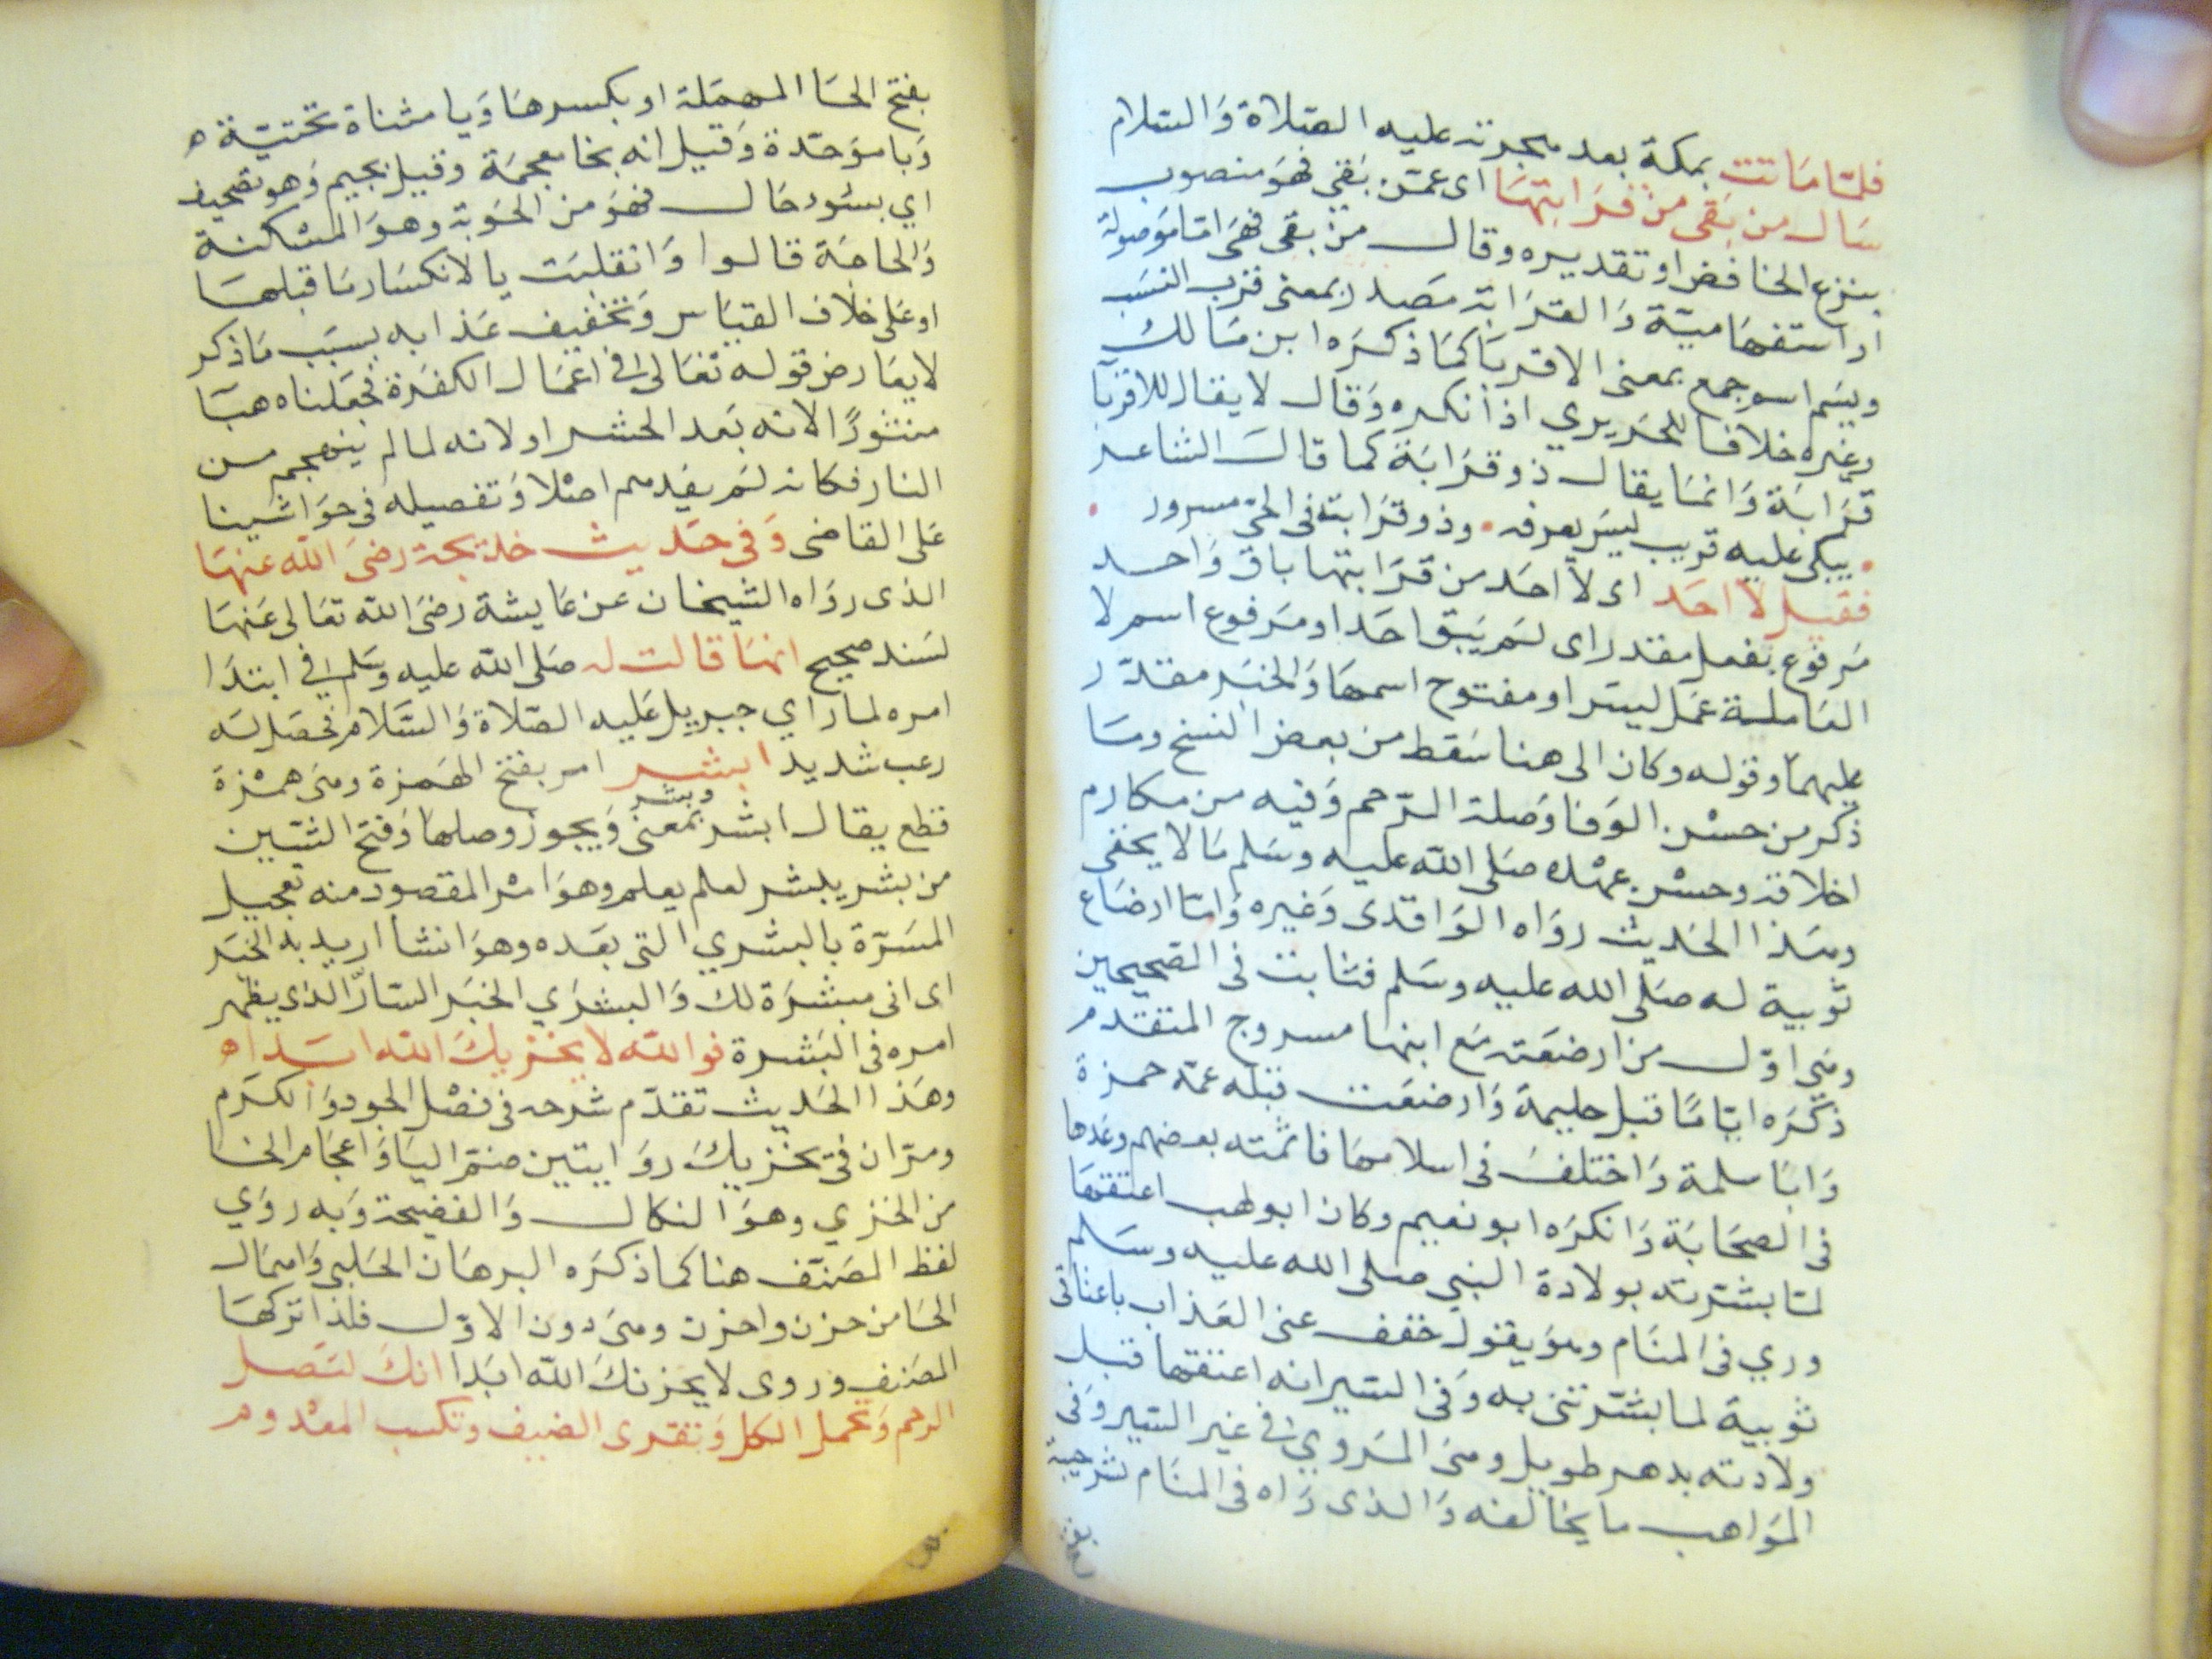 فلما ماتت بمكة بعد هجرته عليه الصلاة والسلام
سال من بقى من قرابتها اى عمن بقي فهو منصوب
بنزع الخافض او تقديره وقال من بقى فهى اما موصولة
او استفهامية والقرابة مصدر بمعنى قرب النسب
ويسم اسم جمع بمعنى الاقربا كما ذكره ابن مالك
وغيره خلافا للحريري اذ انكره وقال لا يقال للاقربا
قرابة وانما يقال ذو قرابة كما قال الشاعر
يبكى عليه قريب ليس يعرفه وذو قرابته فى الحي مسرور
فقيل لا احد اى لا احد من قرابتها باق واحد
مرفوع بفعل مقدر اى لم يبق احد او مرفوع اسم لا
العاملة عمل ليس او مفتوح اسمها والخبر مقدر
عليهما وقوله وكان الى هنا سقط من بعض النسخ وما
ذكر من حسن الوفا وصلة الرحم وفيه من مكارم
اخلاقه وحسن عهده صلى الله عليه وسلم ما لا يخفى
وهذا الحديث رواه الواقدى وغيره واما ارضاع
ثويبة له صلى الله عليه وسلم فثابت فى الصحيحين
وهي اول من ارضعته مع ابنها مسروح المتقدم
ذكره اياما قبل حليمة وارضعت قبله عمه حمزة
وابا سلمة واختلف فى اسلامها فاثبته بعضهم وعدها
فى الصحابة وانكره ابو نعيم وكان ابو لهب اعتقها
لما بشرته بولادة النبي صلى الله عليه وسلم
وري فى المنام وهو يقول خفف عنى العذاب باعتاقى
ثويبة لما بشرتنى به وفى السير انه اعتقها قبل
ولادته بدهر طويل وهى المروي فى غير السير وفى
المواهب ما يخالفه والذى راه فى المنام بشر حيبة
بفتح الحا المهملة او بكسرها ويا مثناة تحتية
وبا موحدة وقيل انه بخا معجمة وقيل بجيم وهو تصحيف
اي بسوء حال فهو من الحوبة وهو المسكنة
والحاجة قالوا وانقلبت يا لانكسار ما قبلها
او على خلاف القياس وتخفيف عذابه بسبب ما ذكر
لا يعارض قوله تعالى فى اعمال الكفرة فجعلناه هبا
منثورا لانه بعد الحشر او لانه لما لم ينجهم من
النار فكانه لم يفدهم اصلا وتفصيله فى حواشينا
على القاضى وفى حديث خديجة رضى الله عنها
الذى رواه الشيخان عن عايشة رضى الله تعالى عنها
بسند صحيح انها قالت له صلى الله عليه وسلم في ابتدا
امره لما راي جبريل عليه الصلاة والسلام فحصل له
رعب شديد ابشر امر بفتح الهمزة وهى همزة
قطع يقال ابشر وبشر بمعنى ويجوز وصلها وفتح الشين
من بشر يبشر لعلم يعلم وهو امر المقصود منه تعجيل
المسرة بالبشري التى بعده وهو انشا اريد به الخبر
اى انى مبشرة لك والبشري الخبر السار الذى يظهر
امره فى البشرة فوالله لا يخزيك الله ابدا
وهذا الحديث تقدم شرحه فى فصل الجود والكرم
ومر ان فى يخزيك روايتين ضم اليا واعجام الخا
من الخزي وهو النكال والفضيحة وبه روي
لفظ المصنف هنا كما ذكره البرهان الحلبى واهمال
الحا من حزن واحزن وهى دون الاول فلذا تركها
المصنف وروى لا يحزنك الله ابدا انك لتصل
الرحم وتحمل الكل وتقرى الضيف وتكسب المعدوم